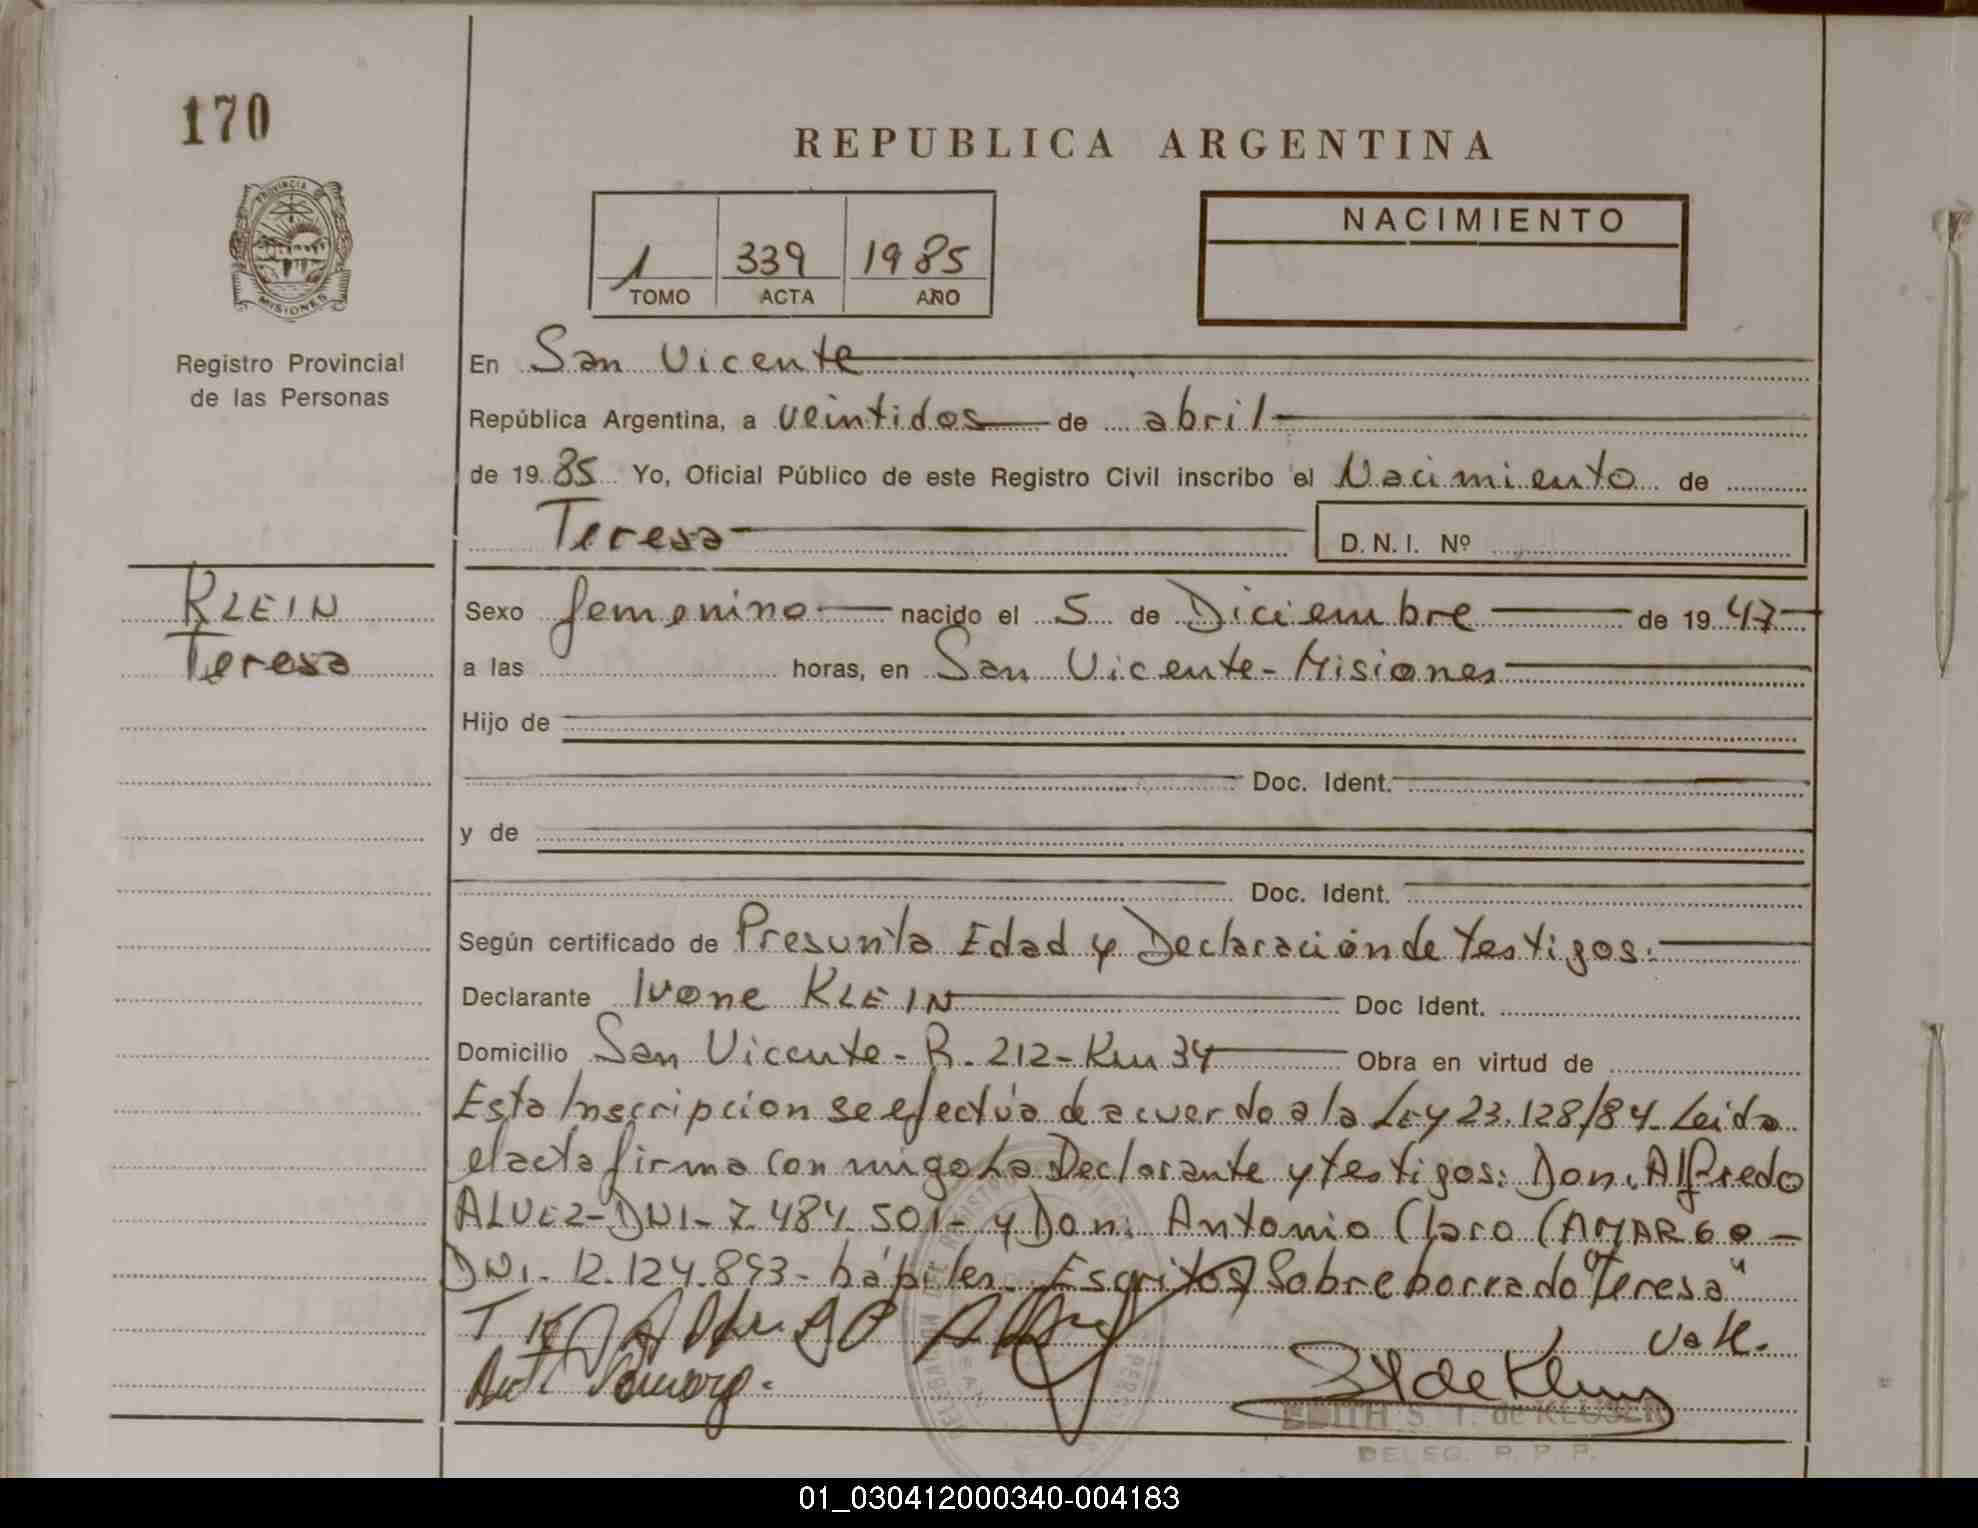 170
REPUBLICA ARGENTINA
PROVINCIA DE
MISIONES
NACIMIENTO
1 339 1985
TOMO ACTA AÑO
Registro Provincial
de las Personas
En San Vicente
República Argentina, a veintidos de abril
de 19 85 Yo, Oficial Público de este Registro Civil inscribo el Nacimiento de
Teresa D.N.I. Nº
KLEIN
Teresa
Sexo femenino nacido el 5 de Diciembre de 19 47
a las horas, en San Vicente - Misiones
Hijo de
Doc. Ident.
y de
Doc. Ident.
Según certificado de Presunta Edad y Declaración de testigos.
Declarante Ivone KLEIN Doc Ident.
Domicilio San Vicente - R. 212 - Km 34 Obra en virtud de
Esta Inscripcion se efectúa de acuerdo a la LEy 23.128/84. Leida
el acta firma con migo La Declarante y testigos: Don. Alfredo
ALVEZ - DNI - 7.484.501 - y Don. Antonio Claro CAMARGO -
DNI - 12.124.893 - hábiles. Escritos Sobre borrado "Teresa"
Vale.
EDITH S. T. de KLUSER
DELEG. R. P. P.
01_030412000340-004183